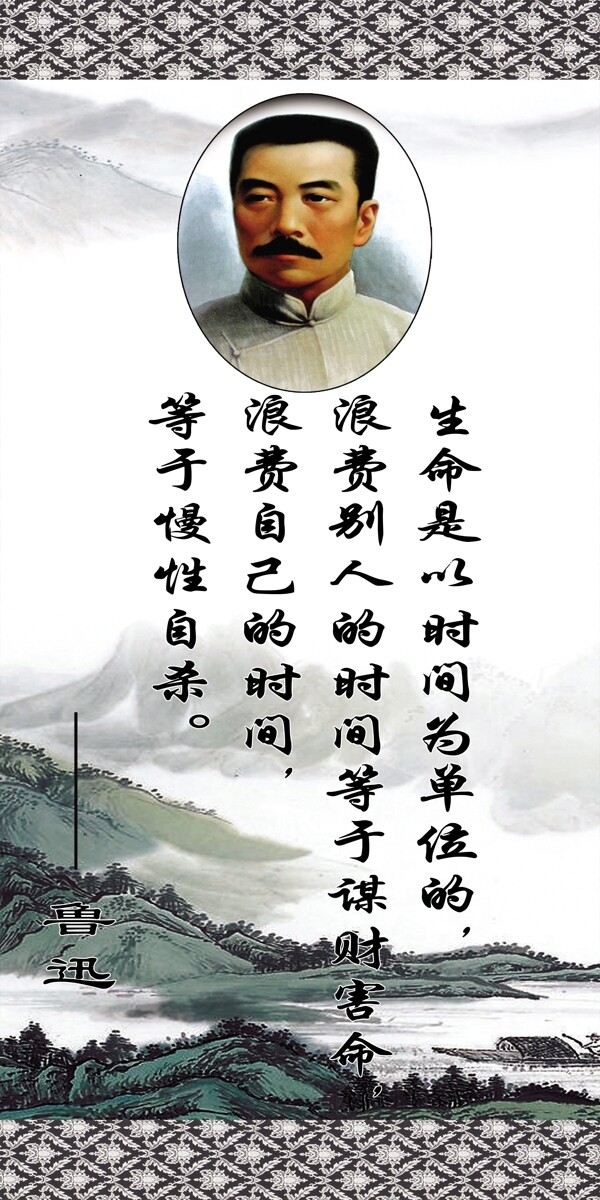 生命是以时间为单位的，
浪费别人的时间等于谋财害命，
浪费自己的时间，
等于慢性自杀。
——鲁迅